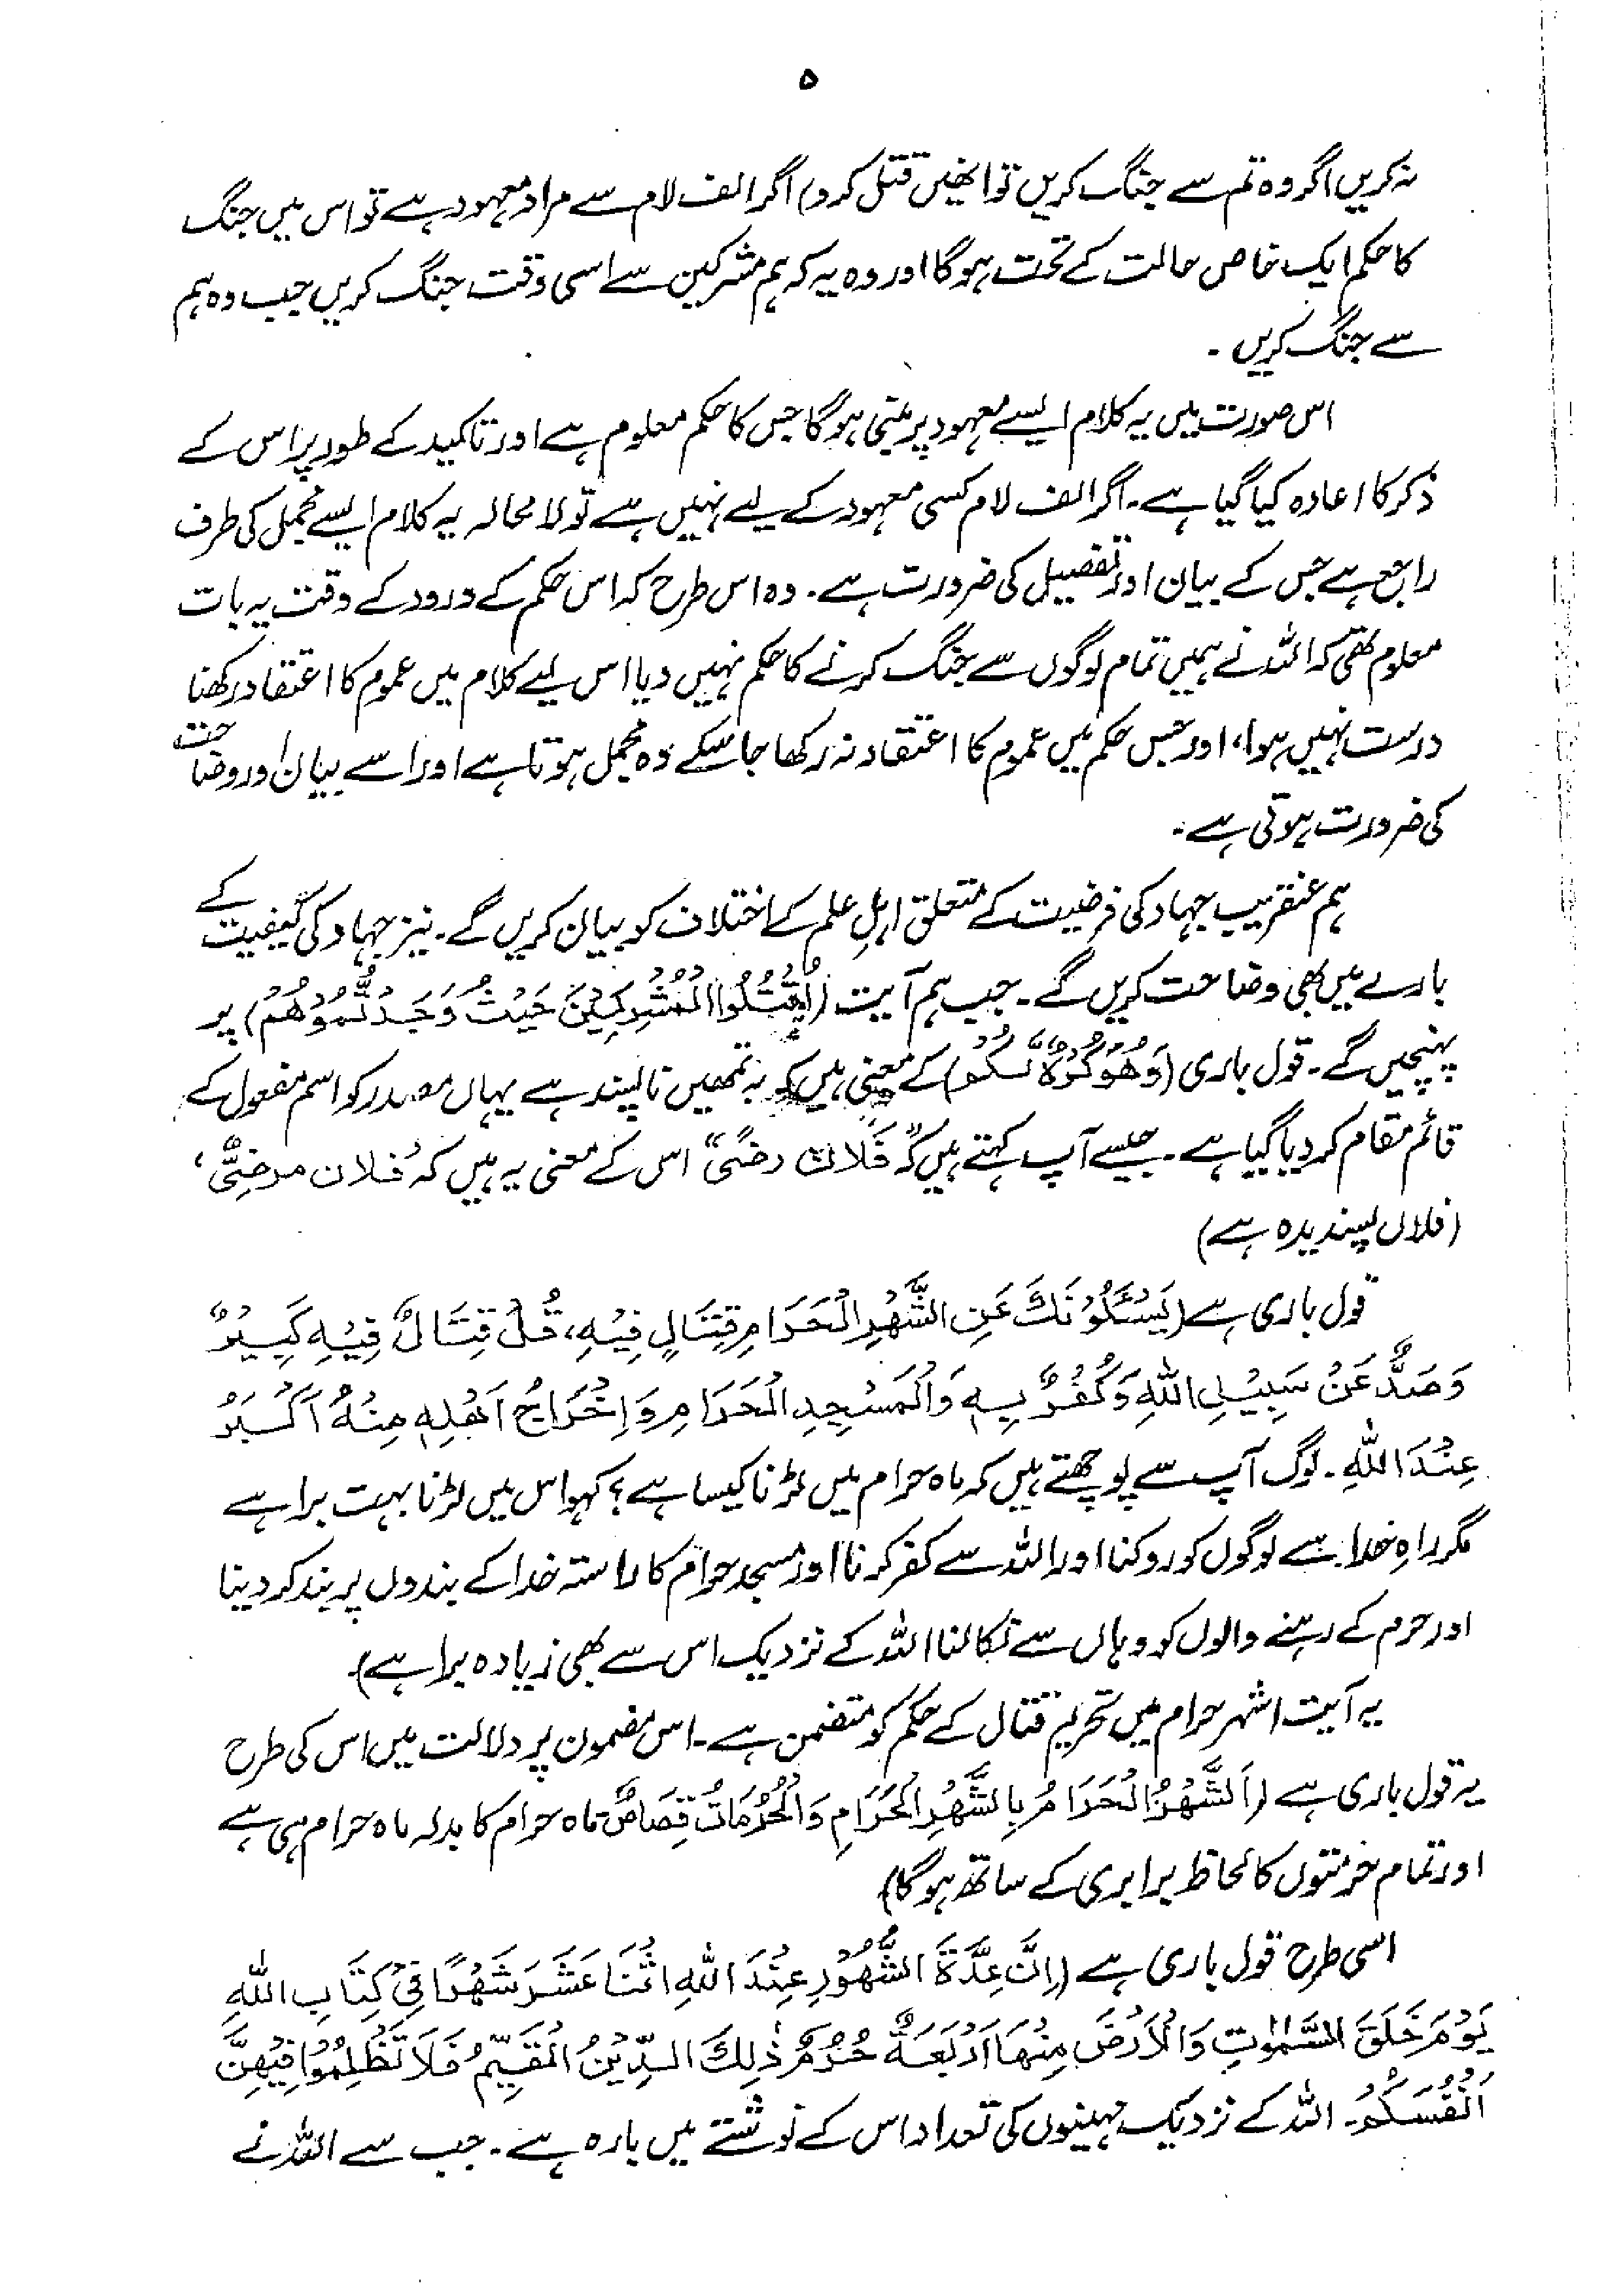 ۵
نہ کریں اگر وہ تم سے جنگ کریں تو انھیں قتل کرو) اگر الف لام سے مراد معہود ہے تو اس میں جنگ
کا حکم ایک خاص حالت کے تحت ہوگا اور وہ یہ کہ ہم مشرکین سے اسی وقت جنگ کریں جب وہ ہم
سے جنگ کریں ۔
اس صورت میں یہ کلام ایسے معہود پر مبنی ہوگا جس کا حکم معلوم ہے اور تاکید کے طور پر اس کے
ذکر کا اعادہ کیا گیا ہے۔ اگر الف لام کسی معہود کے لیے نہیں ہے تو لا محالہ یہ کلام ایسے مجمل کی طرف
راجع ہے جس کے بیان اور تفصیل کی ضرورت ہے۔ وہ اس طرح کہ اس حکم کے ورود کے وقت یہ بات
معلوم تھی کہ اللہ نے ہمیں تمام لوگوں سے جنگ کرنے کا حکم نہیں دیا اس لیے کلام میں عموم کا اعتقاد رکھنا
درست نہیں ہوا، اور جس حکم میں عموم کا اعتقاد نہ رکھا جا سکے وہ مجمل ہوتا ہے اور اسے بیان اور وضاحت
کی ضرورت ہوتی ہے۔
ہم عنقریب جہاد کی فرضیت کے متعلق اہلِ علم کے اختلاف کو بیان کریں گے۔ نیز جہاد کی کیفیت کے
بارے میں بھی وضاحت کریں گے۔ جب ہم آیت (اُقْتُلُوا الْمُشْرِكِيْنَ حَيْثُ وَجَدْتُّمُوْهُمْ) پر
پہنچیں گے۔ قول باری (وَهُوَ كُرْهٌ لَّكُمْ) کے معنی ہیں کہ یہ تمھیں ناپسند ہے یہاں مصدر کو اسم مفعول کے
قائم مقام کر دیا گیا ہے۔ جیسے آپ کہتے ہیں کہ "فَلان رضًى" اس کے معنی یہ ہیں کہ 'فلان مرضِیٌّ'
(فلاں پسندیدہ ہے)
قول باری ہے (يَسْئَلُوْنَكَ عَنِ الشَّهْرِ الْحَرَامِ قِتَالٍ فِيْهِ، قُلْ قِتَالٌ فِيْهِ كَبِيْرٌ
وَصَدٌّ عَنْ سَبِيْلِ اللّٰهِ وَكُفْرٌ بِهٖ وَالْمَسْجِدِ الْحَرَامِ وَاِخْرَاجُ اَهْلِهٖ مِنْهُ اَكْبَرُ
عِنْدَ اللّٰهِ۔ لوگ آپ سے پوچھتے ہیں کہ ماہ حرام میں لڑنا کیسا ہے؟ کہو اس میں لڑنا بہت برا ہے
مگر راہِ خدا سے لوگوں کو روکنا اور اللہ سے کفر کرنا اور مسجد حرام کا راستہ خدا کے بندوں پر بند کر دینا
اور حرم کے رہنے والوں کو وہاں سے نکالنا اللہ کے نزدیک اس سے بھی زیادہ برا ہے)
یہ آیت اشہر حرام میں تحریم قتال کے حکم کو متضمن ہے۔ اس مضمون پر دلالت میں اس کی طرح
یہ قول باری ہے (اَلشَّهْرُ الْحَرَامُ بِالشَّهْرِ الْحَرَامِ وَالْحُرُمَاتُ قِصَاصٌ ماہ حرام کا بدلہ ماہ حرام ہی ہے
اور تمام حرمتوں کا لحاظ برابری کے ساتھ ہوگا)
اسی طرح قول باری ہے (اِنَّ عِدَّةَ الشُّهُوْرِ عِنْدَ اللّٰهِ اثْنَا عَشَرَ شَهْرًا فِيْ كِتَابِ اللّٰهِ
يَوْمَ خَلَقَ السَّمٰوٰتِ وَالْاَرْضَ مِنْهَا اَرْبَعَةٌ حُرُمٌ ذٰلِكَ الدِّيْنُ الْقَيِّمُ فَلَا تَظْلِمُوْا فِيْهِنَّ
اَنْفُسَكُمْ۔ اللہ کے نزدیک مہینوں کی تعداد اس کے نوشتے میں بارہ ہے۔ جب سے اللہ نے